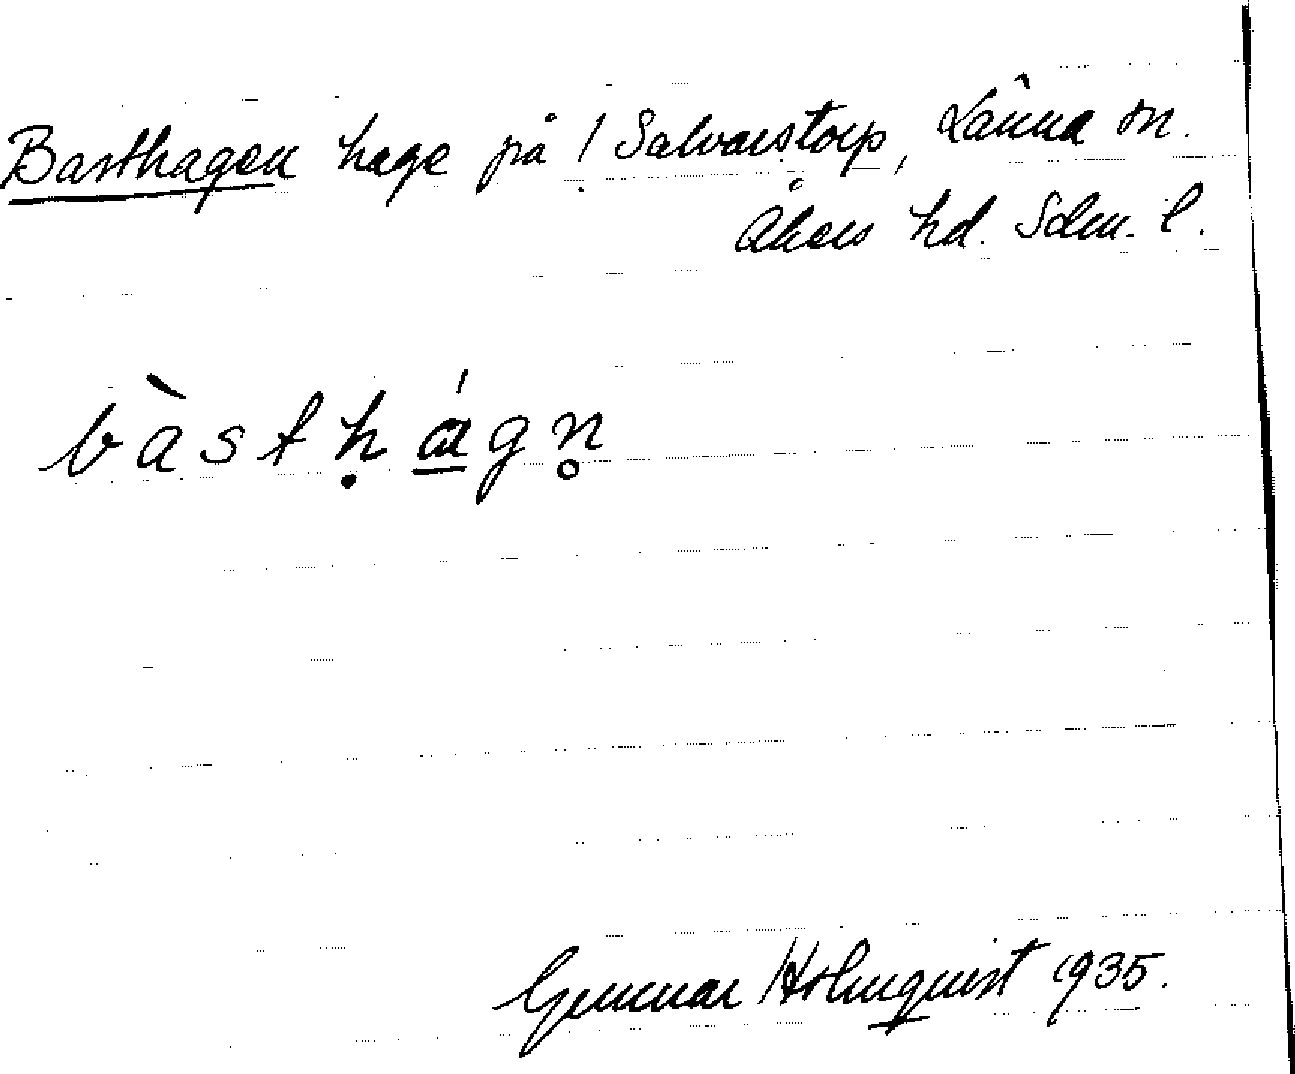 Basthagen hage på ! Salvarstorp, Länna sn.
Åkers hd. Sdm. l.
bàstḥágn̥
Gunnar Holmquist 1935.